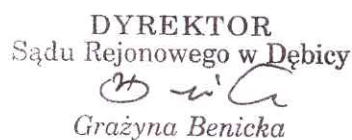 DYREKTOR
Sądu Rejonowego w Dębicy
Grażyna Benicka